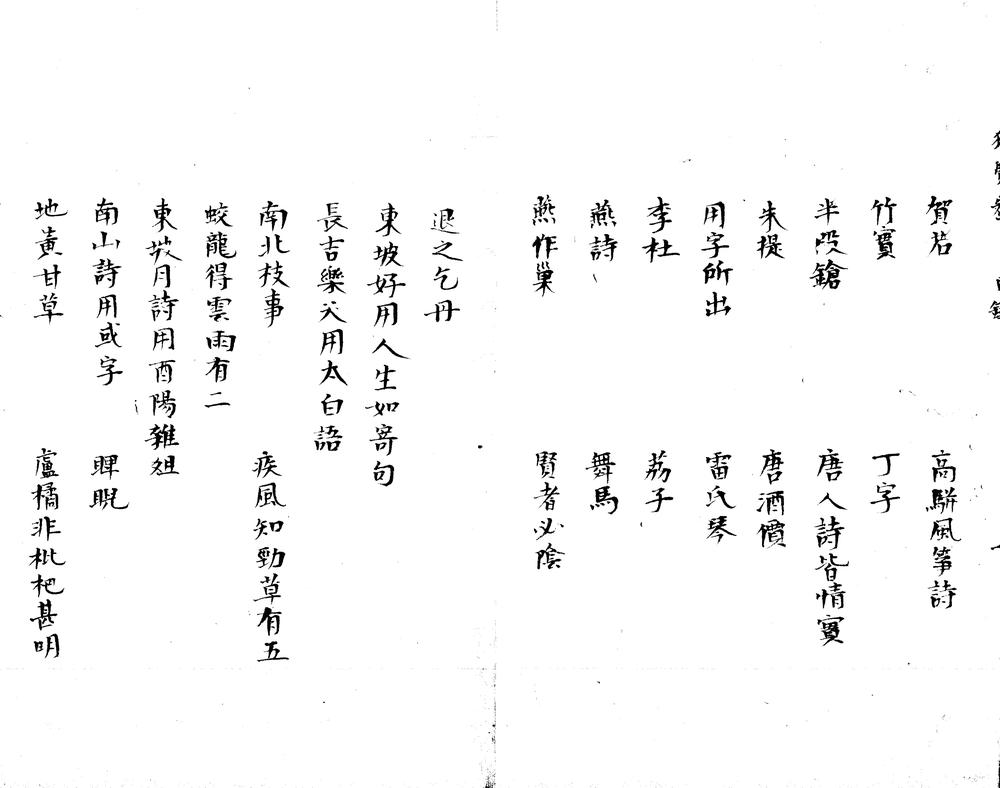 賀若　高駢風箏詩
竹實　丁字
半段鎗　唐人詩皆情實
朱提　唐酒價
用字所出　雷氏琴
李杜　荔子
燕詩　舞馬
燕作巢　賢者必陰
退之乞丹
東坡好用人生如寄句
長吉樂天用太白語
南北枝事　疾風知勁草有五
蛟龍得雲雨有二
東坡月詩用酉陽雜俎
南山詩用或字　睥睨
地黃甘草　盧橘非枇杷甚明